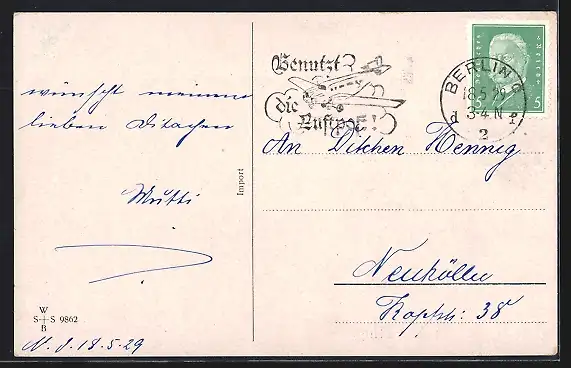 wünscht meinem
lieben Ditachen
Mutti
W
S+S 9862
B
N. d. 18.5.29
Import
Benutzt
die
Luftpost!
BERLIN
18.5.29
3-4 N
2
5 5
An Ditchen Hennig
Neukölln
Kopfstr: 38